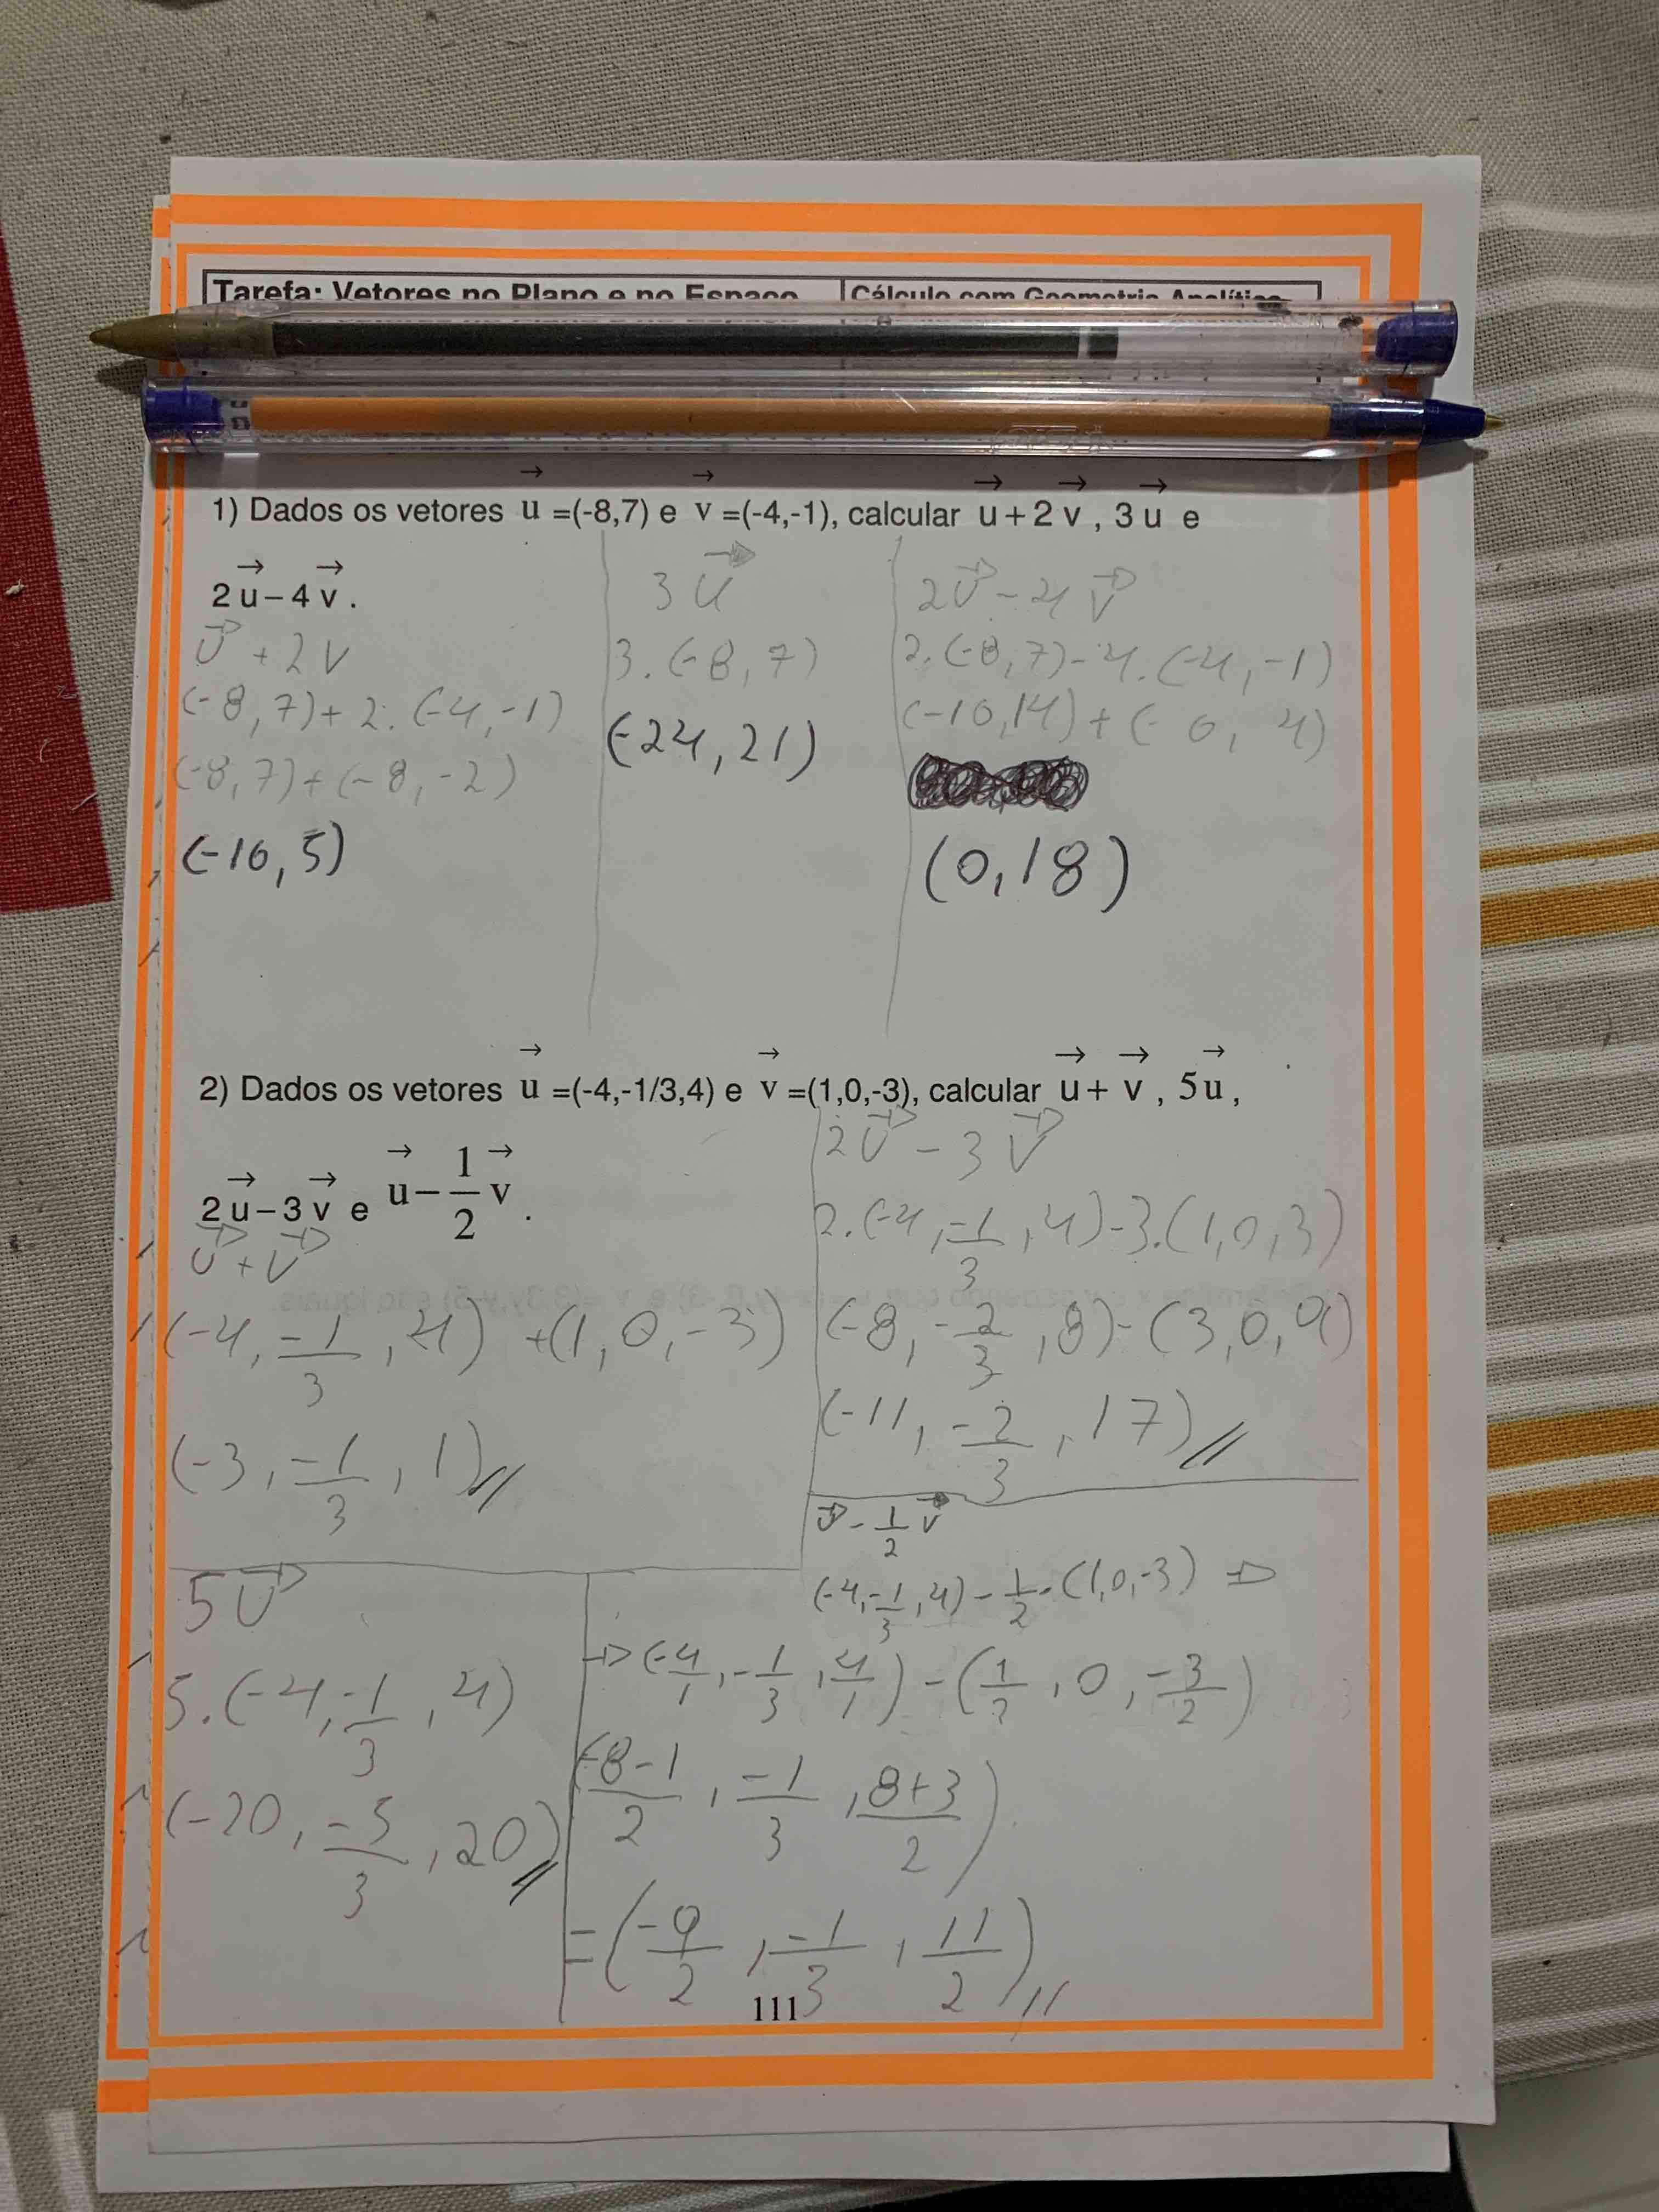 Tarefa: Vetores no Plano e no Espaço Cálculo com Geometria Analítica
1) Dados os vetores u⃗ =(-8,7) e v⃗ =(-4,-1), calcular u⃗+2v⃗ , 3u⃗ e
2u⃗–4v⃗ .
u⃗ + 2v
(-8,7)+2.(-4,-1)
(-8,7)+(-8,-2)
(-16,5)
3u⃗
3.(-8,7)
(-24,21)
2u⃗-4v⃗
2.(-8,7)-4.(-4,-1)
(0,18)
2) Dados os vetores u⃗ =(-4,-1/3,4) e v⃗ =(1,0,-3), calcular u⃗+ v⃗ , 5u⃗ ,
2u⃗–3v⃗ e u⃗–1/2v⃗ .
u⃗+v⃗
(-4,-1/3,4) +(1,0,-3)
(-3,-1/3,1)//
2u⃗-3v⃗
2.(-4,-1/3,4)-3.(1,0,3)
(-8,-2/3,8)-(3,0,9)
(-11,-2/3,17)//
5u⃗
5.(-4,-1/3,4)
(-20,-5/3,20)//
u⃗-1/2v⃗
(-4,-1/3,4)-1/2.(1,0,-3) ⇒
⇒(-4/1,-1/3,4/1)-(1/2,0,-3/2)
(-8-1/2,-1/3,8+3/2)
=(-9/2,-1/3,11/2)//
111